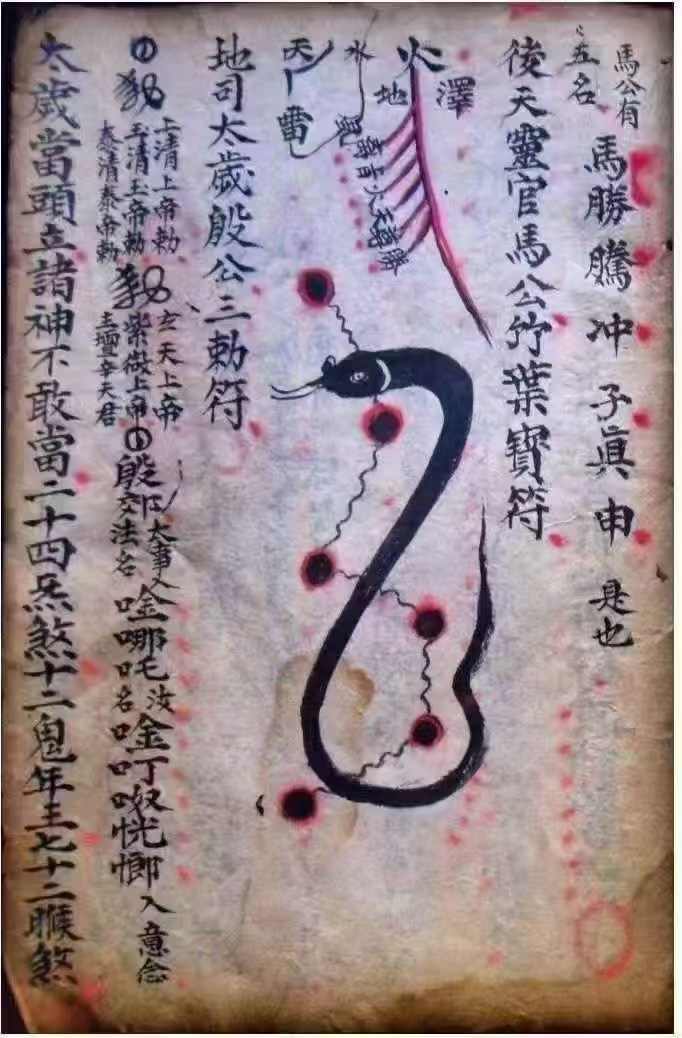 馬公有
五名
馬勝 騰 冲 子眞 申 是也
後天靈官馬公竹葉寶符
火
澤
地
水
天
雷
風
地司太歲殷公三勅符
上清上帝勅
玉清玉帝勅
泰清泰帝勅
玄天上帝
紫微上帝
主壇辛天君
殷郊
法名
唫哪吒
唫叮㘓恍惚
入意念
太歲當頭立諸神不敢當二十四炁煞十二鬼年王七十二喉煞